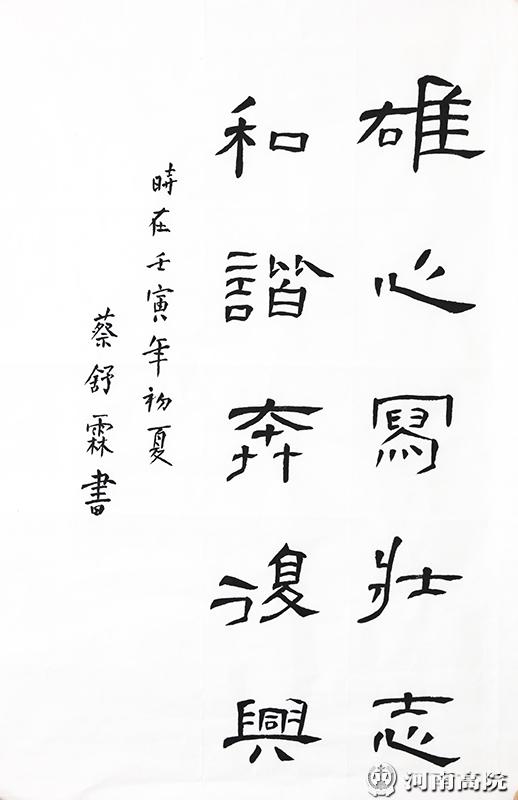 雄心寫壯志
和諧奔復興
時在壬寅年初夏
蔡舒霖書
河南高院